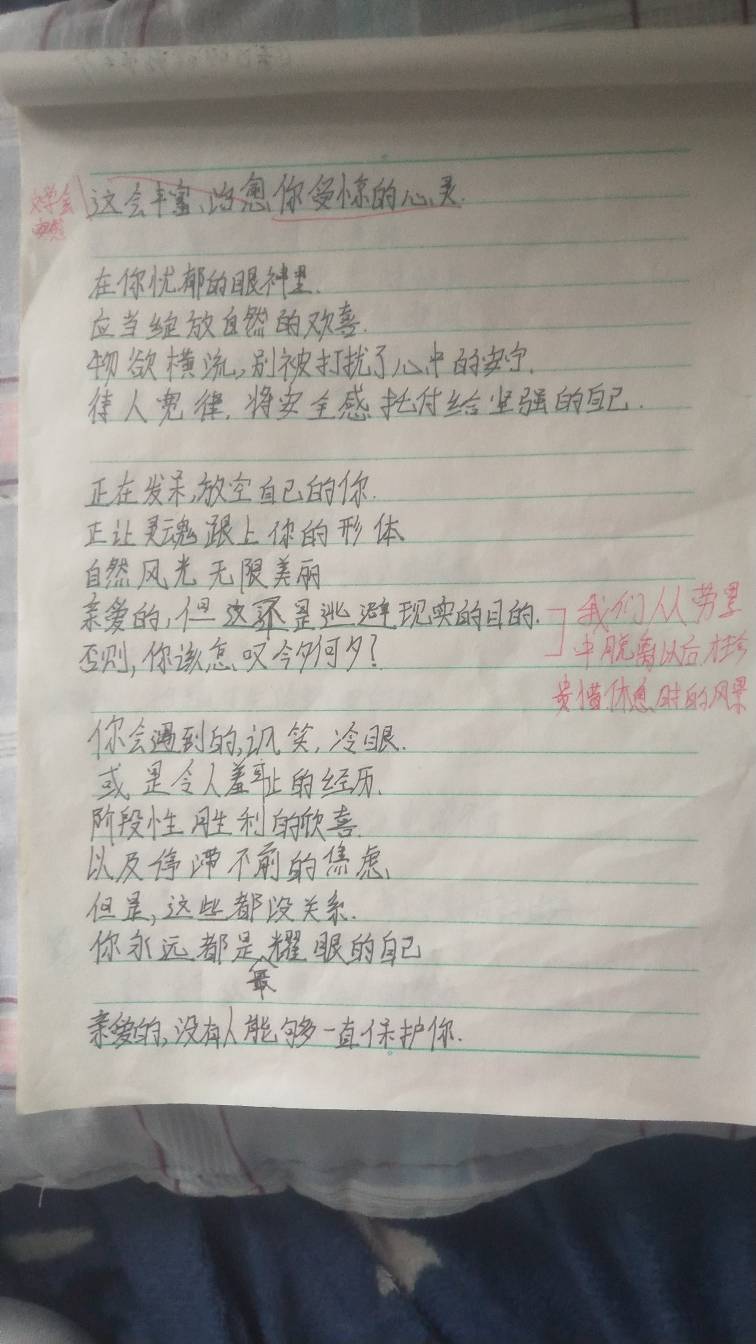 文学会
安慰
这会丰富、治愈你受惊的心灵.
在你忧郁的眼神里.
应当绽放自然的欢喜.
物欲横流,别被打扰了心中的安宁.
待人宽律.将安全感托付给坚强的自己.
正在发呆,放空自己的你.
正让灵魂跟上你的形体
自然风光无限美丽
亲爱的,但这不是逃避现实的目的.
否则,你该怎叹今夕何夕?
我们从劳累
中脱离以后才会
贵惜休息时的风景
你会遇到的,讥笑,冷眼.
或是令人羞耻的经历.
阶段性胜利的欣喜.
以及停滞不前的焦虑.
但是,这些都没关系.
你永远都是最耀眼的自己
亲爱的,没有人能够一直保护你.